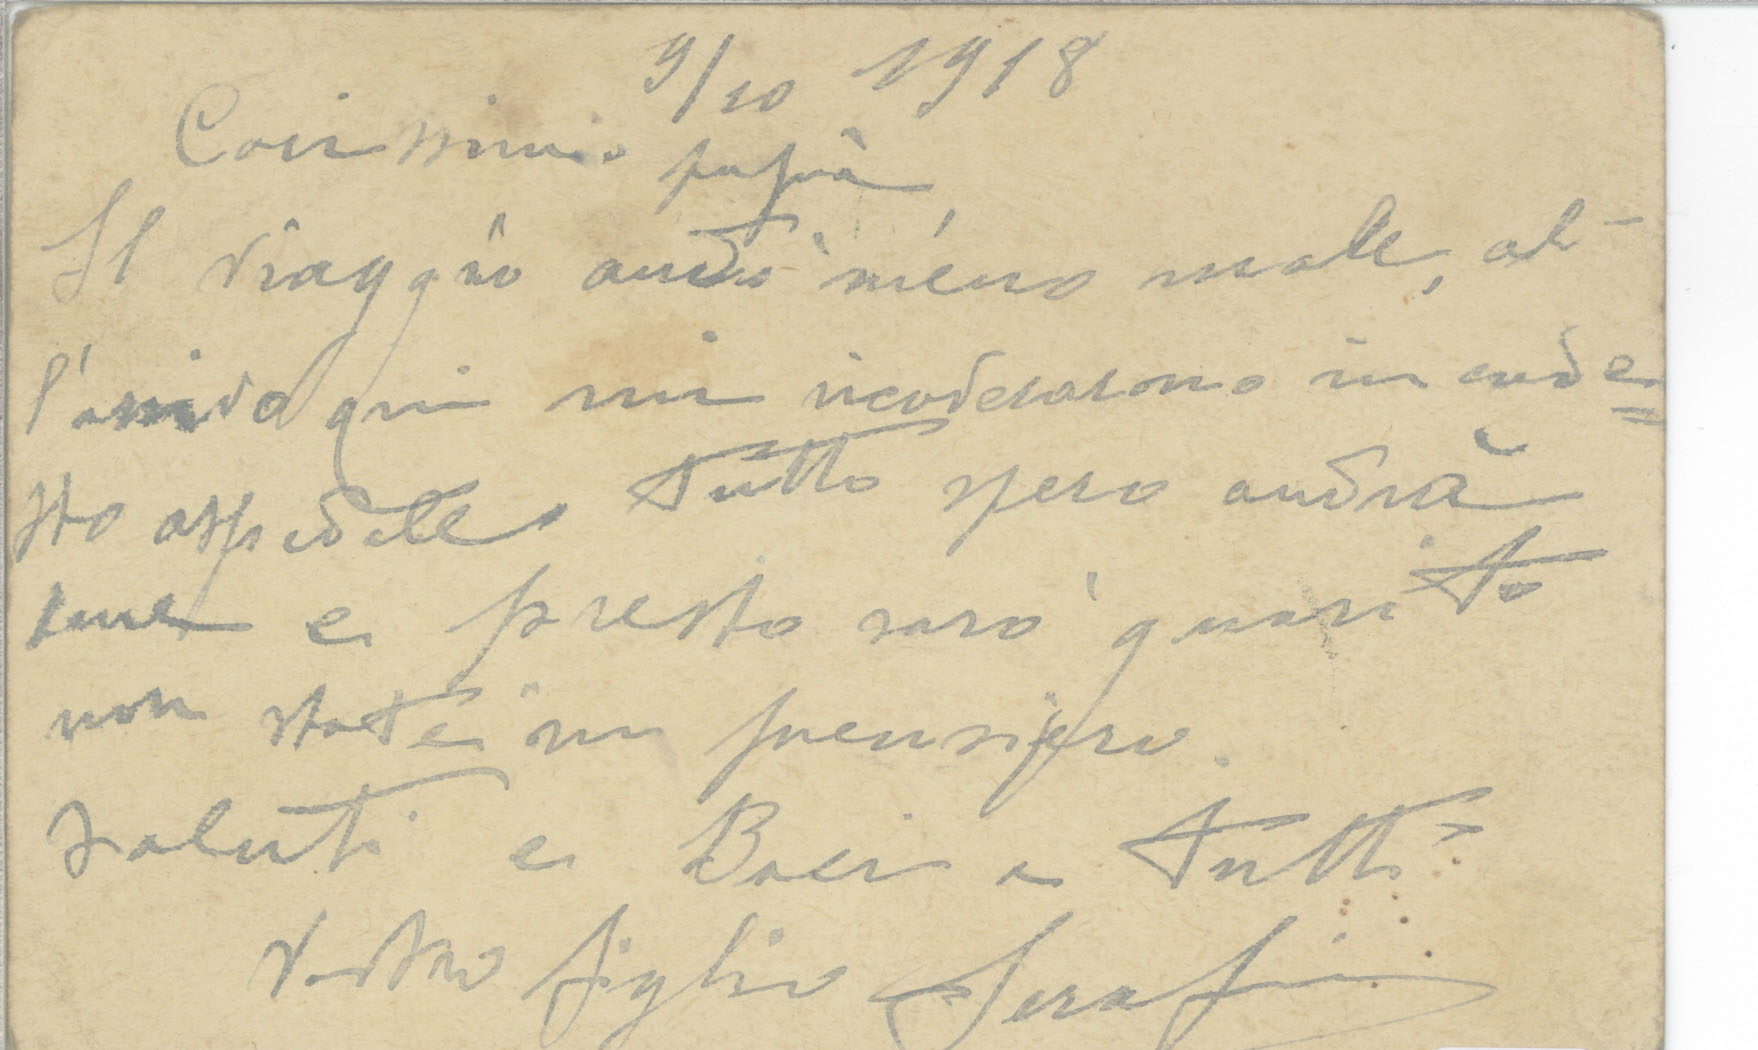 9/10 1918
Carissimo papà
Il viaggio andò meno male, al-
l'arrivo qui mi ricoverarono in
sto ospedale. Tutto spero andrà
bene e presto sarò guarito
non state in pensiero.
Saluti e Baci a Tutti
Vostro figlio Serafi